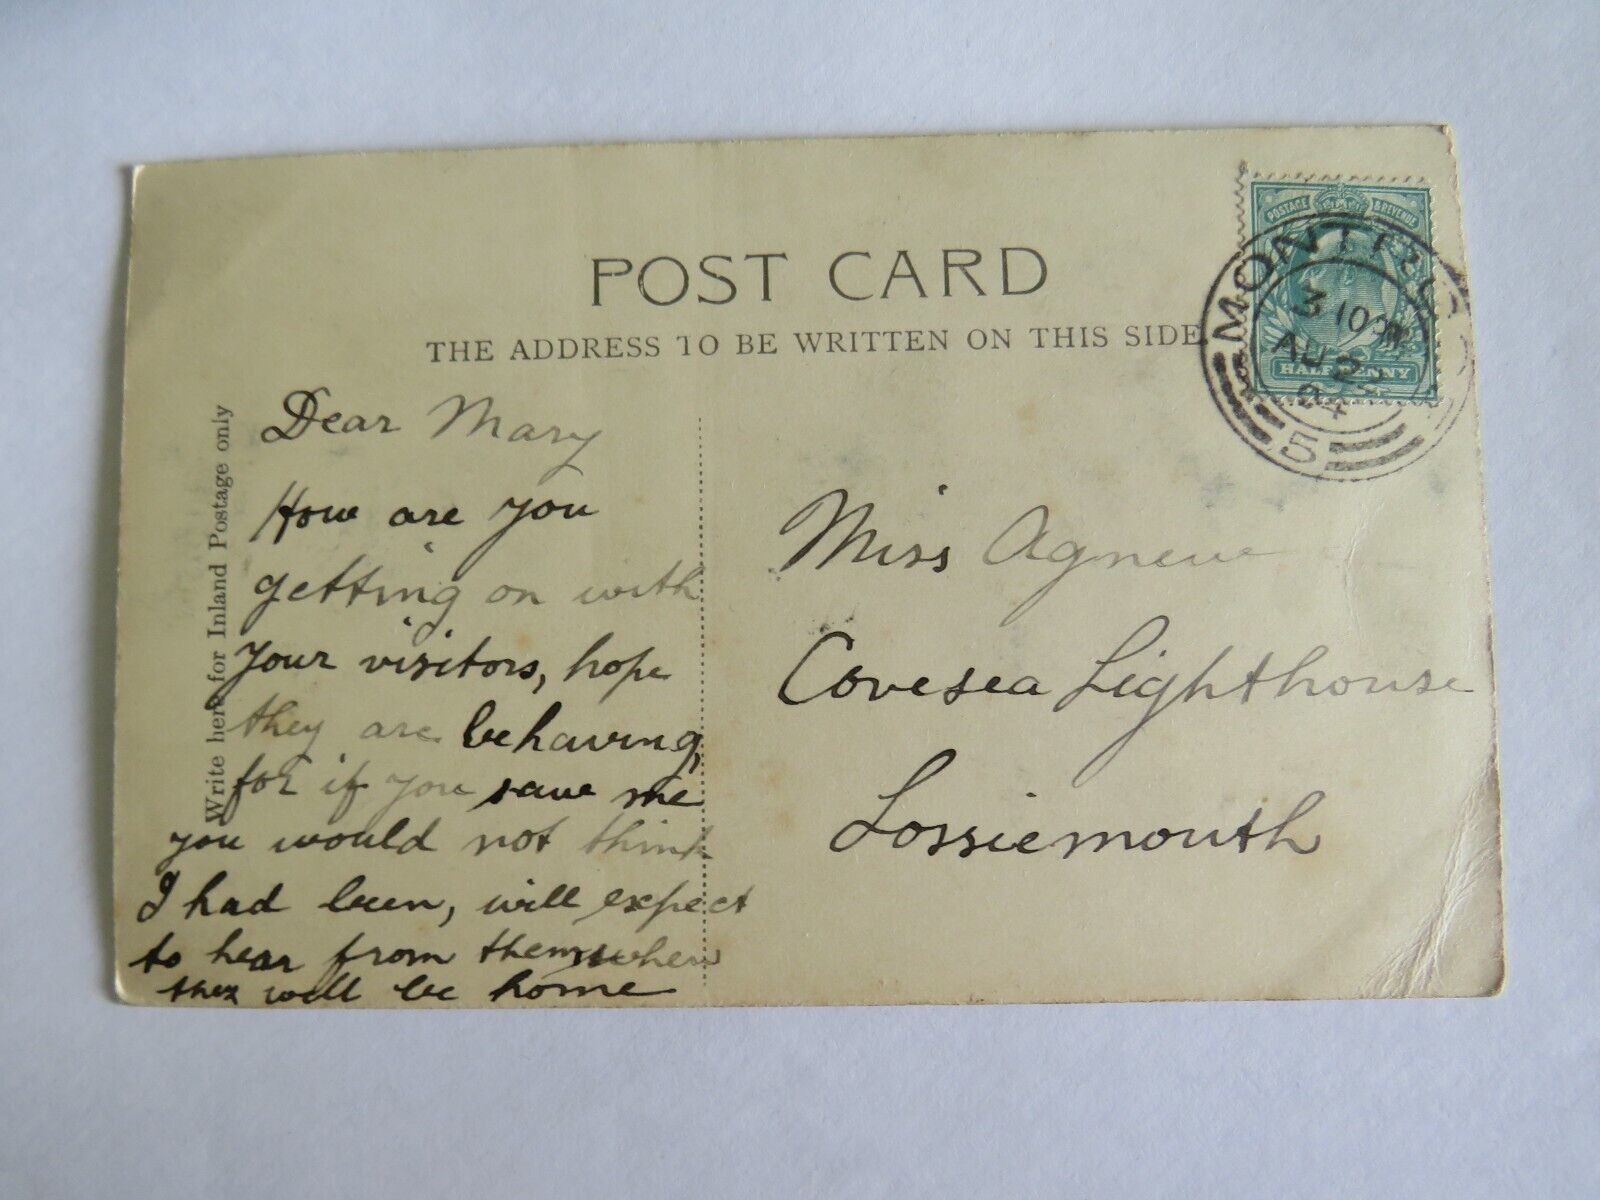 POST CARD
THE ADDRESS TO BE WRITTEN ON THIS SIDE
Write here for Inland Postage only
Dear Mary
How are you
getting on with
your visitors, hope
they are behaving,
for if you saw me
you would not think
I had been, will expect
to hear from them when
they will be home
POSTAGE & REVENUE
HALFPENNY
MONTROS
3 10
AU 2
04
5
Miss Agnew
Covesea Lighthouse
Lossiemouth